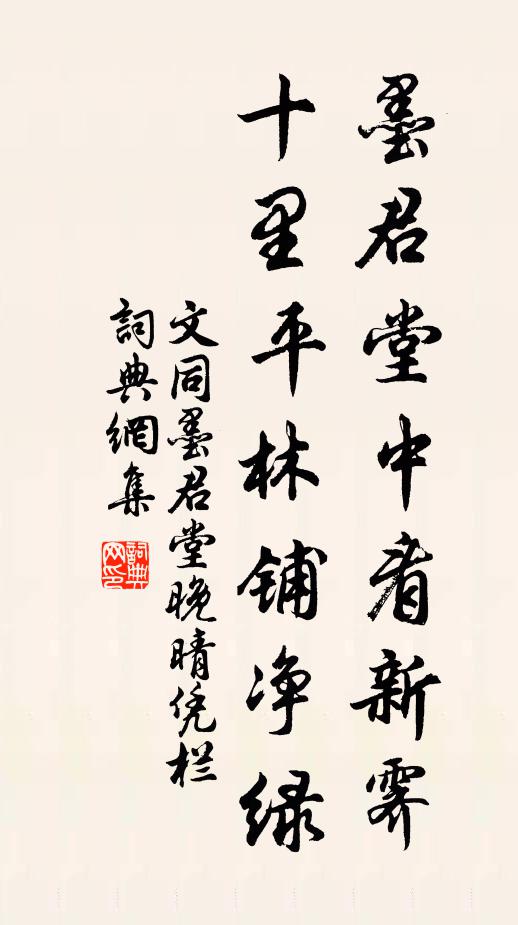 墨君堂中看新霁
十里平林铺净绿
文同墨君堂晚晴凭栏
詞典網集
詞典网印